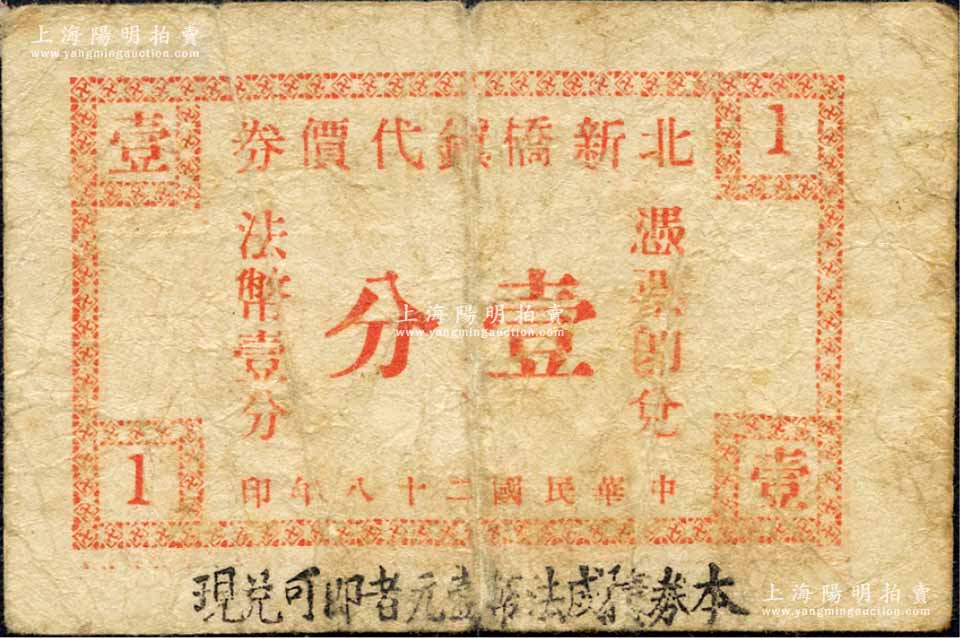 上海陽明拍賣
www.yangmingauction.com
壹
北新橋鎮代價券
1
憑票即兌
壹分
法幣壹分
上海陽明拍賣
www.yangmingauction.com
1
中華民國二十八年印
壹
本券積成法幣壹元者即可兌現
上海陽明拍賣
www.yangmingauction.com